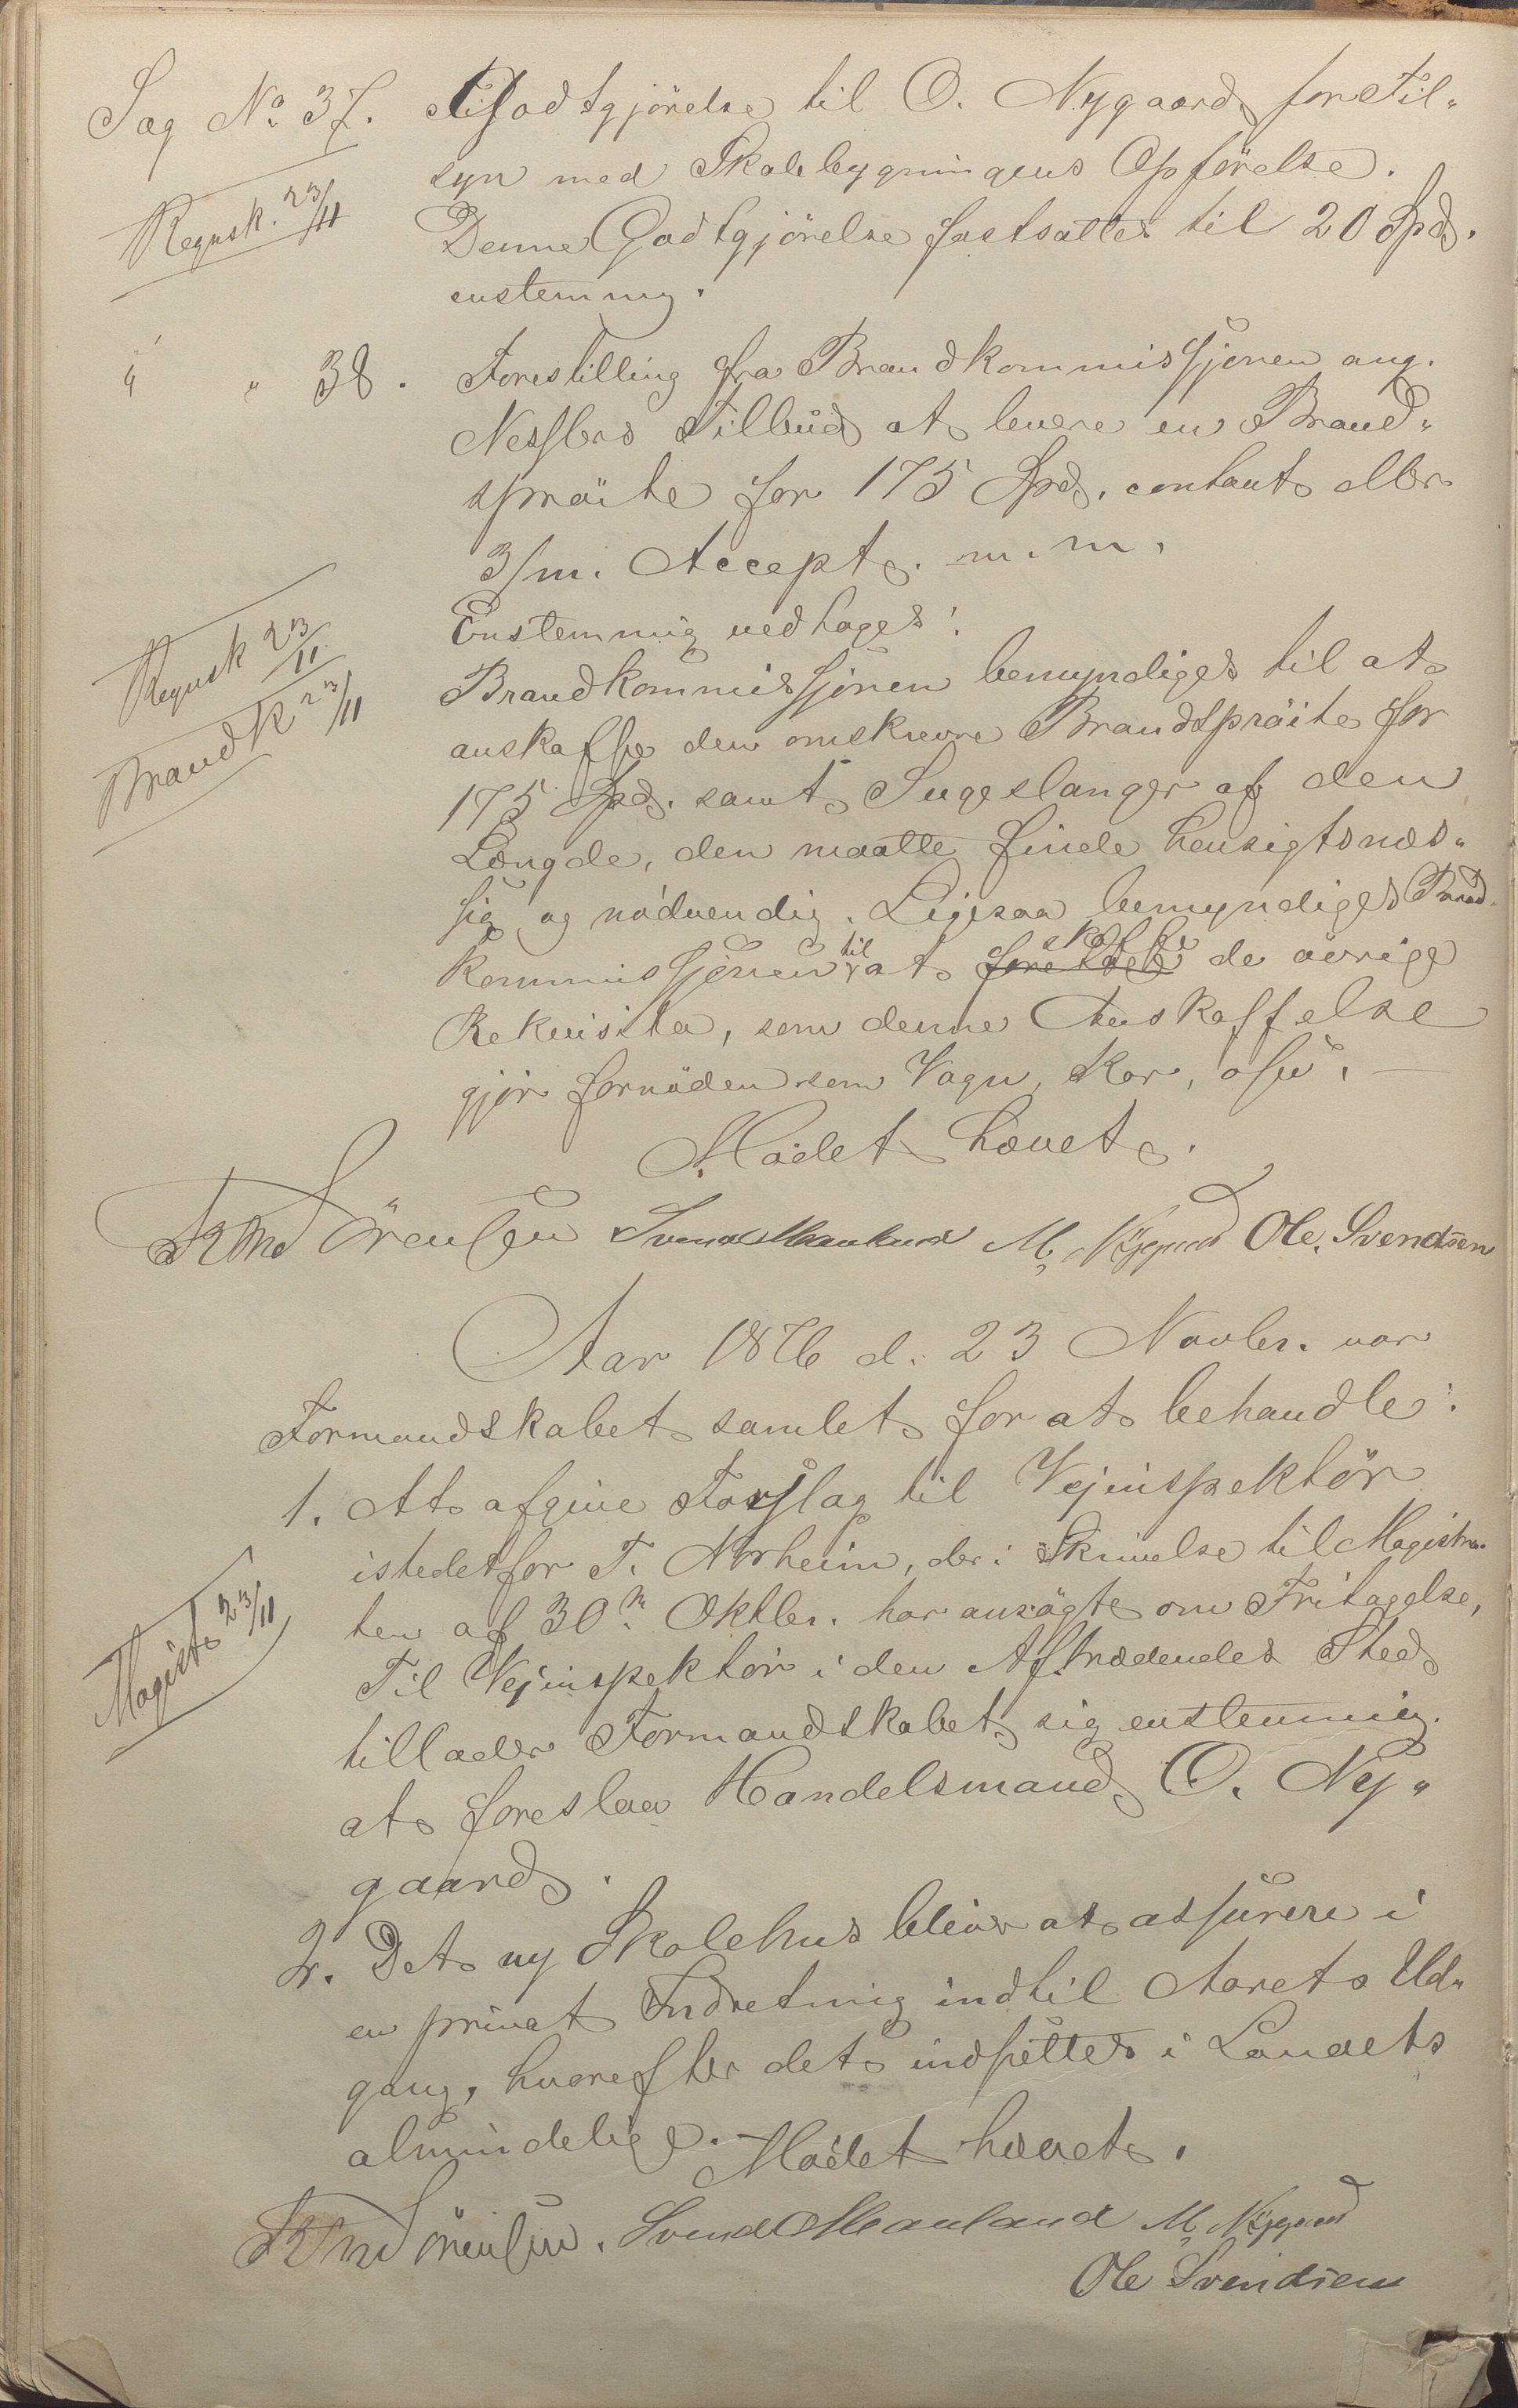 Sag No. 37. Godtgjörelse til O. Nygaard for Til-
syn med Skolebygningens Opförelse.
Regnsk. 23/11
Denne Godtgjörelse fastsattes til 20 Spd.
enstemmig.
" " 38. Forestilling fra Brandkommissjonen ang.
Nesslers Tilbud at levere en Brand-
spröite for 175 Spd. contant eller
3/m. Accept. m. m.
Enstemmig vedtoges:
Regnsk 23/11
Brandk 23/11
Brandkommissjonen bemyndiges til at
anskaffe den omskrevne Brandspröite for
175 Spd. samt Sugeslanger af den
Længde, den maatte finde hensigtsmæs-
sig og nödvendig. Ligesaa bemyndiges Brand-
kommissjonen til at skaffe de övrige
Rekvisita, som denne Anskaffelse
gjör fornöden som Vogn, Kar, osv. —
Mödet hævet.
Sörensen Svend Meanland M. Nygaard Ole Svendsen
Aar 1876 d. 23 Novbr. var
Formandskabet samlet for at behandle:
1. At afgive Forslag til Vejinspektör
istedetfor T. Norheim, der i Skrivelse til Magistra-
ten af 30. Oktbr. har ansögt om Fritagelse,
Magist 23/11
Til Vejinspektör i den Aftrædendes Sted
tillader Formandskabet sig enstemmig
at foreslaa Handelsmand O. Ny-
gaard.
2. Det ny Skolehus bliver at assurere i
en privat Indretning indtil Aarets Ud-
gang, hvorefter det indsættes i Landets
almindelige. Mödet hævet.
Sörensen. Svend Meanland M. Nygaard
Ole Svendsen